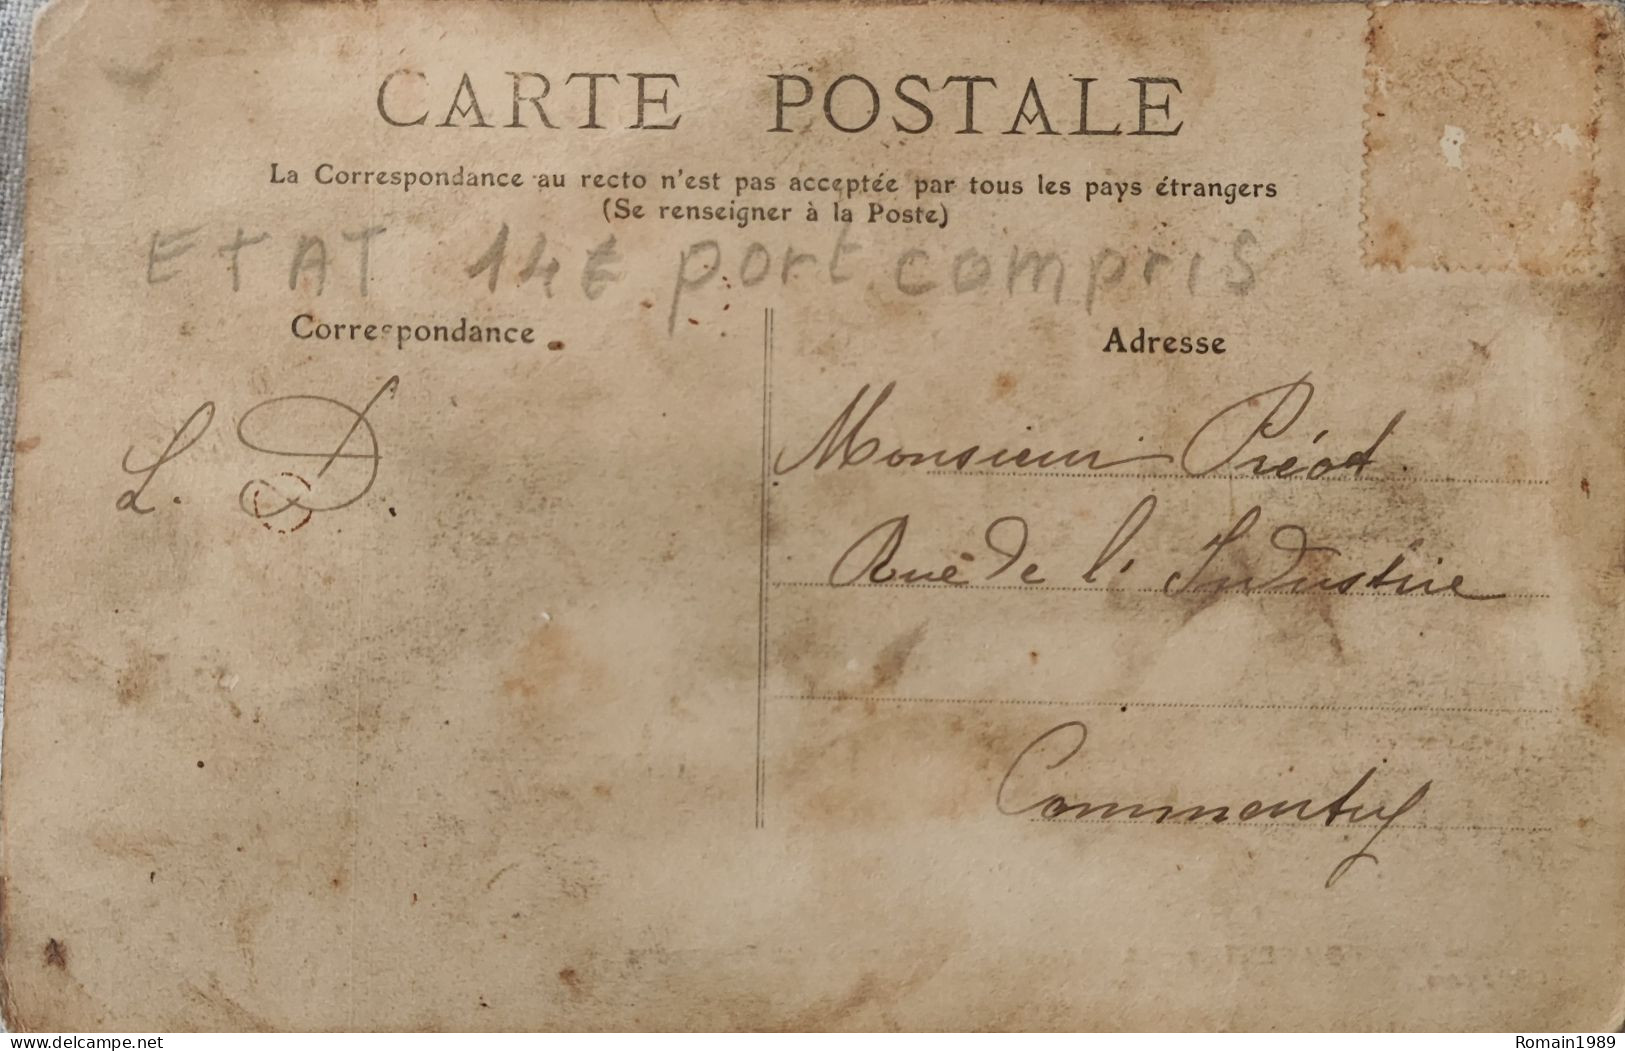 CARTE POSTALE
La Correspondance au recto n'est pas acceptée par tous les pays étrangers
(Se renseigner à la Poste)
ETAT 14€ port compris
Correspondance
Adresse
L. D.
Monsieur Préot.
Rue de l'Industrie
Commentry
www.delcampe.net
Romain1989